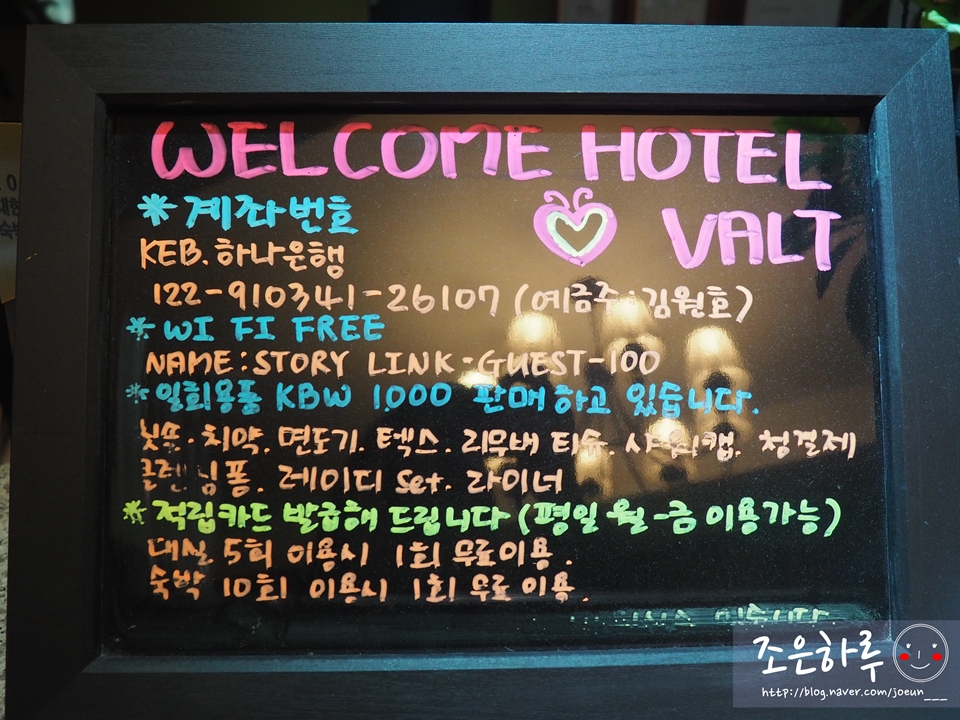 WELCOME HOTEL
VALT
*계좌번호
KEB.하나은행
122-910341-26107 (예금주:김원호)
*WI FI FREE
NAME:STORY LINK-GUEST-100
*일회용품 KBW 1,000 판매하고 있습니다.
칫솔.치약.면도기.텍스.리무버 티슈.샤워캡.청결제
클렌징폼.레이디 set.라이너
*적립카드 발급해 드립니다 (평일 월-금 이용가능)
대실 5회 이용시 1회 무료이용.
숙박 10회 이용시 1회 무료 이용.
있습니다
조은하루
http://blog.naver.com/joeun___